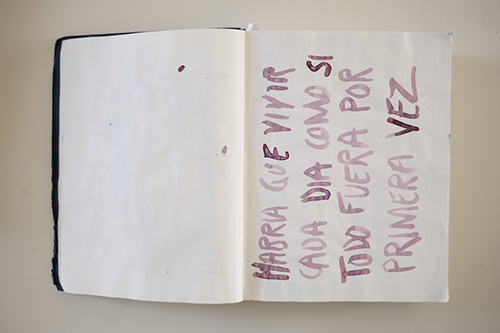 HABRIA QUE VIVIR
CADA DIA COMO SI
TODO FUERA POR
PRIMERA VEZ